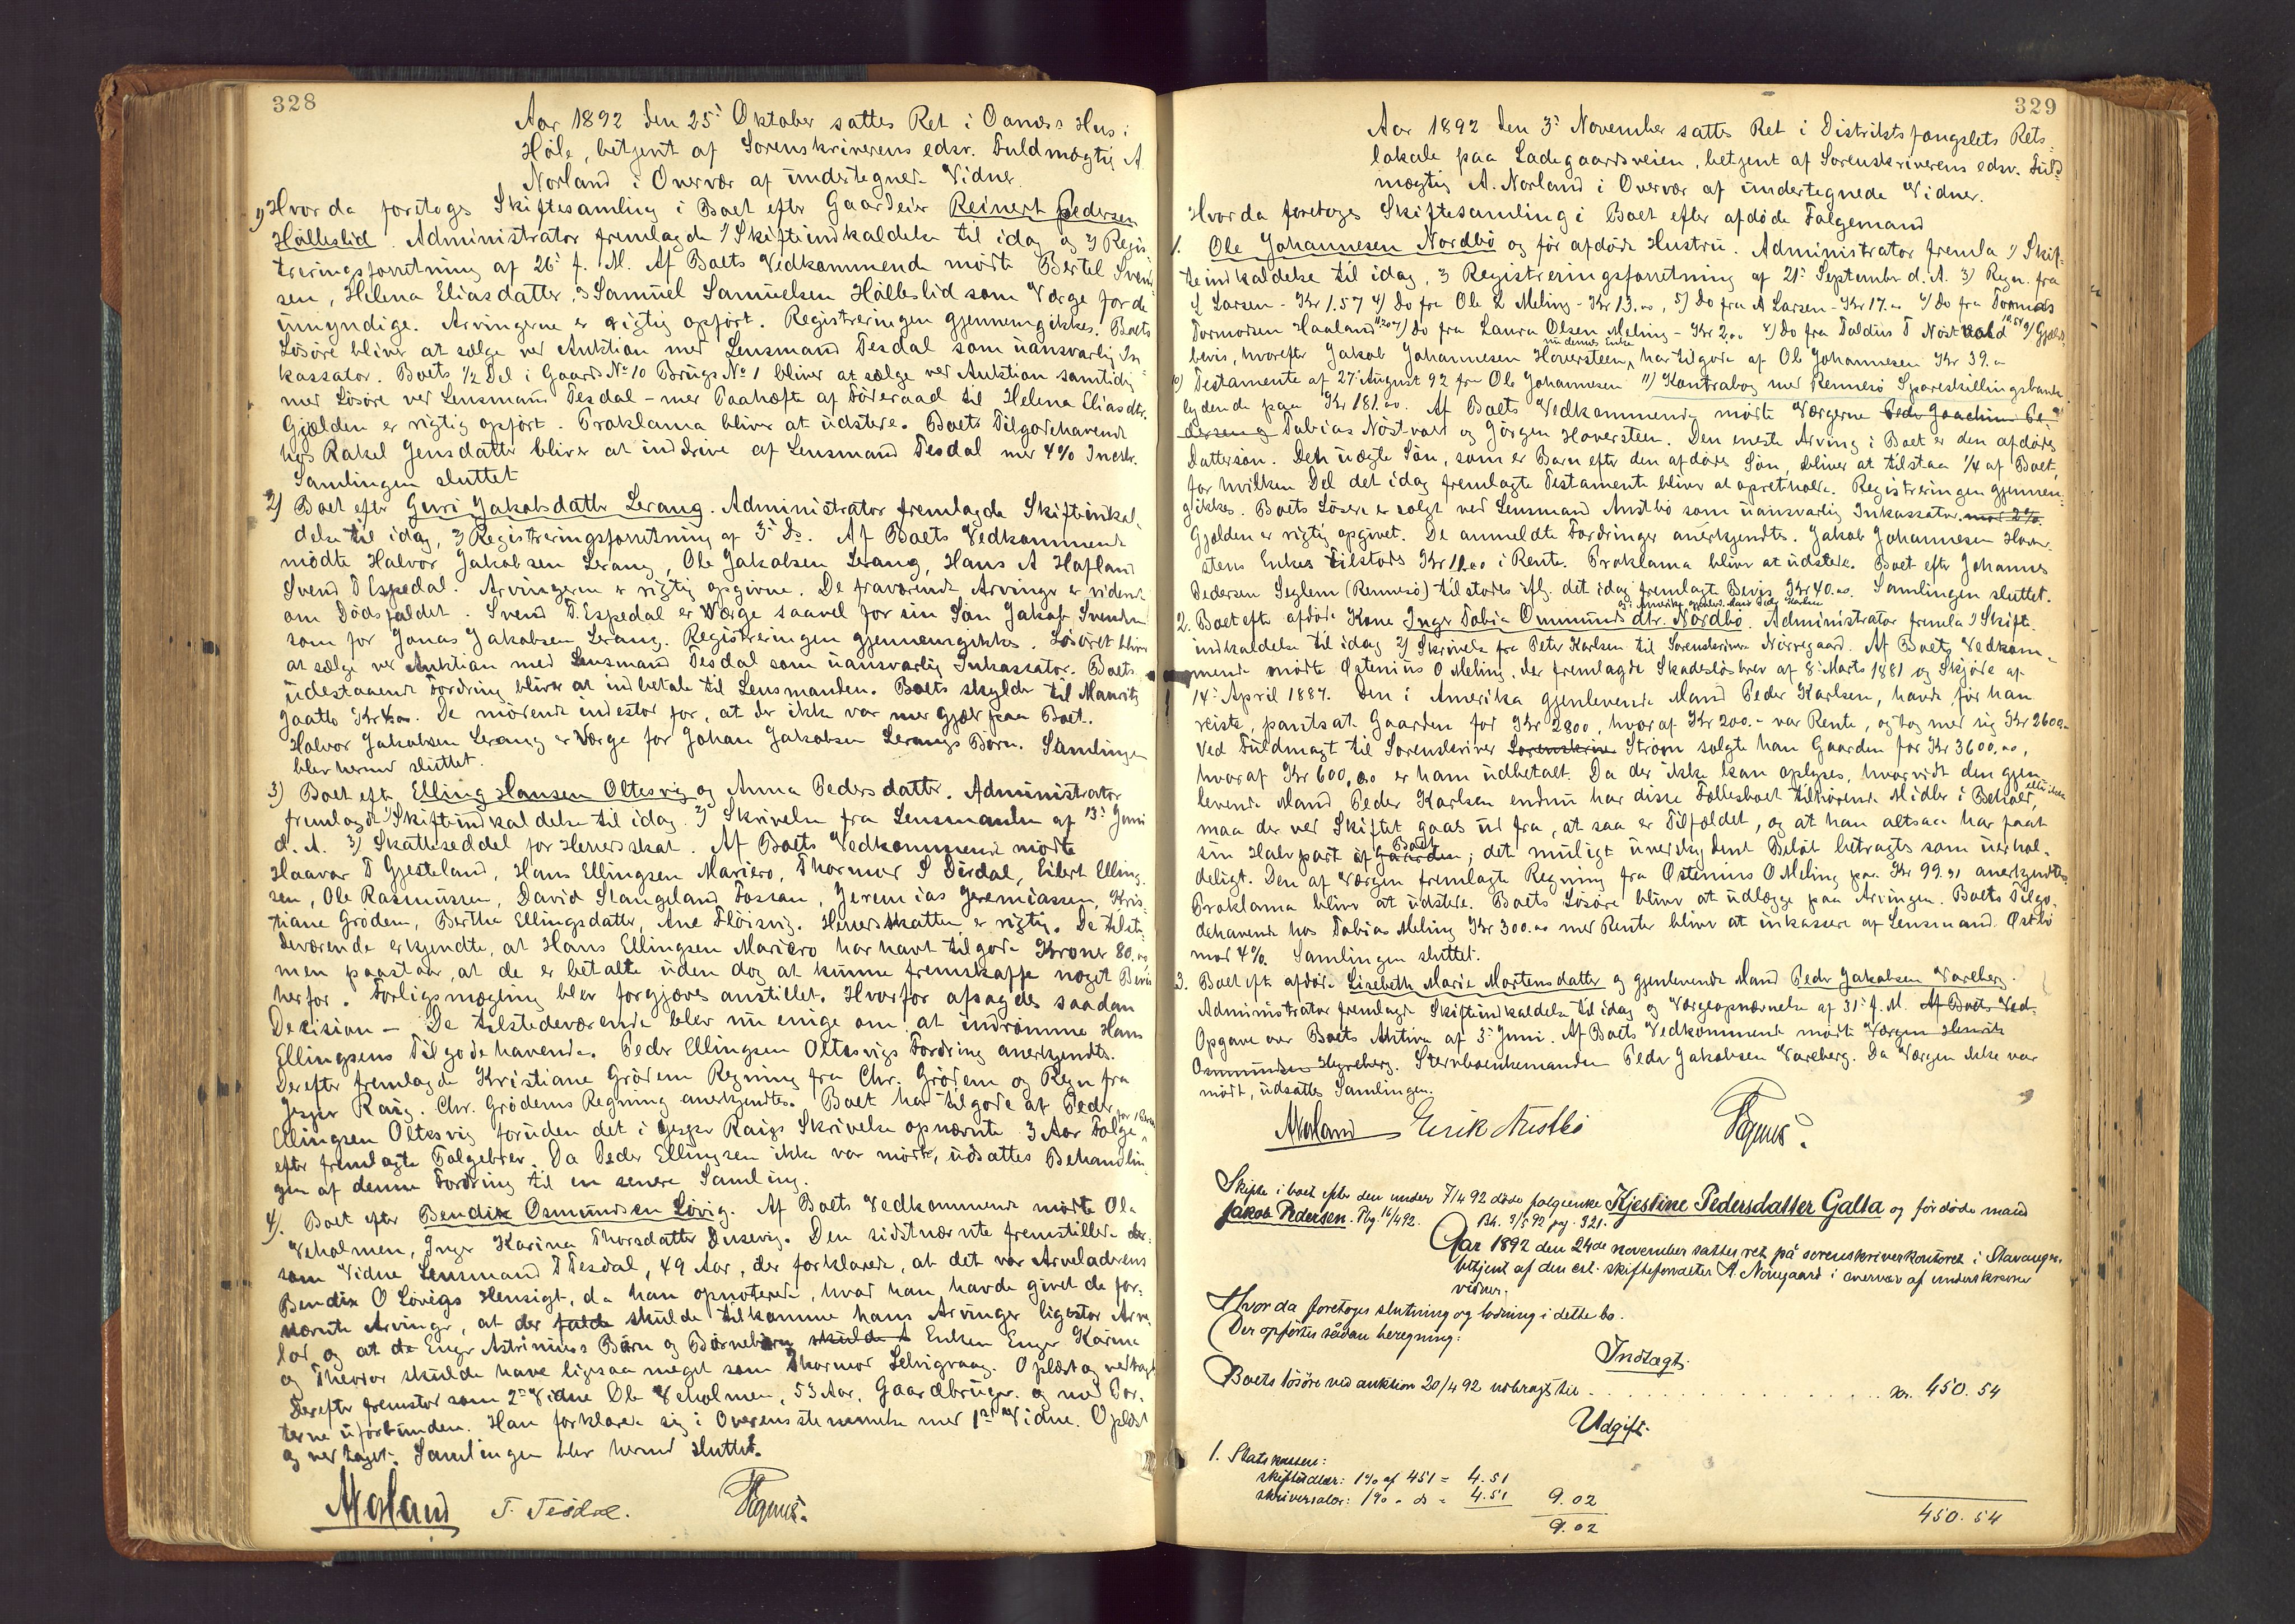 328
Aar 1892 den 25' Oktober sattes Ret i Oanæs Hus i
Høle, betjent af Sorenskriverens edsv. Fuldmægtig A
Norland i Overvær af undertegnede Vidner.
1) Hvor da foretoges Skiftesamling i Boet efter Gaardeier Reinert Pedersen
Hølleslid. Administrator fremlagde 1) Skifteindkaldelse til idag og 2) Regi-
streringsforretning af 26' f. M. Af Boets Vedkommende mødte Bertel Svend-
sen, Helena Eliasdatter, & Samuel Samuelsen Hølleslid som Værge for de
umyndige. Arvingerne er rigtig opført. Registreringen gjennemgikkes. Boets
Løsøre bliver at sælge ved Auktion med Lensmand Tesdal som uansvarlig In-
kassator. Boets 1/2 Del i Gaards No 10 Brugs No 1 bliver at sælge ved Auktion samtidig
med Løsøre ved Lensmand Tesdal - med Paahæfte af Føderaad til Helena Eliasdtr.
Gjælden er rigtig opført. Proklama bliver at udstede. Boets Tilgodehavende
hos Rakel Jensdatter bliver at inddrive af Lensmand Tesdal med 4% Incstr.
Samlingen sluttet
2) Boet efter Guri Jakobsdatter Lerang. Administrator fremlagde Skifteindkal-
delse til idag, 2) Registreringsforretning af 3' Ds. Af Boets Vedkommende
mødte Halvor Jakobsen Lerang, Ole Jakobsen Lerang, Hans A Hafland
Svend T Espedal. Arvingerne er rigtig opgivne. De fraværende Arvinger er vidende
om Dødsfaldet. Svend T. Espedal er Værge saavel for sin Søn Jakob Svendsen
som for Jonas Jakobsen Lerang. Registreringen gjennemgikkes. Løsøret bliver
at sælge ved Auktion med Lensmand Tesdal som uansvarlig Inkassator. Boets
udestaaende Fordring bliver at indbetale til Lensmanden. Boets skylder til Mauritz
Gaatto Kr 4.00. De mødende indestod for, at der ikke var mer Gjæld paa Boet.
Halvor Jakobsen Lerang er Værge for Johan Jakobsen Lerangs Børn. Samlingen
blev hermed sluttet.
3) Boet eft. Elling Hansen Oltesvig og Anna Pedersdatter. Administrator
fremlagde 1) Skifteindkaldelse til idag. 2) Skrivelse fra Lensmanden af 13' Juni
d. A. 3) Skatteseddel for Herredsskat. Af Boets Vedkommende mødte
Haavar T Gjesteland, Hans Ellingsen Mariero, Thormod S Dirdal, Eilert Elling-
sen, Ole Rasmussen, David Stangeland Fossan, Jeremias Jeremiassen, Kris-
tiane Grødem, Berthe Ellingsdatter, Ane Fløisvig. Herredsskatten er rigtig. De tilste-
deværende erkjendte, at Hans Ellingsen Mariero har havt tilgode Kroner 80.00
men paastaar, at de er betalte uden dog at kunne fremskaffe noget Bevis
herfor. Forligsmægling blev forgjæves anstillet. Hvorfor afsagdes saadan
Decision - De tilstedeværende blev nu enige om, at indrømme Hans
Ellingsens Tilgodehavende. Peder Ellingsen Oltesvigs Fordring anerkjendtes.
Derefter fremlagde Kristiane Grødem Regning fra Chr. Grødem og Regn fra
Jesper Raig. Chr. Grødems Regning anerkjendtes. Boet har tilgode af Peder
Ellingsen Oltesvig foruden det i Jesper Raigs Skrivelse opnævnte 3 Aar Folge
efter fremlagte Folgebrev. Da Peder Ellingsen ikke var mødt, udsattes Behandlin-
gen af denne Fordring til en senere Samling.
4). Boet efter Bendix Osmundsen Løvig. Af Boets Vedkommende mødte Ole
Veholmen, Inger Karina Thorsdatter Dusevig. Den sidstnævnte fremstillede
som Vidne Lensmand T Tesdal, 49 Aar, der forklarede, at det var Arveladerens
Bendix O Løvigs Hensigt, da han opnoterede, hvad han havde givet de for-
nævnte Arvinger, at der skulde tilkomme hans Arvinger ligestor Arve-
lod og at de Enge Astrinius's Børn og Børnebørn skulde Enken Enger Karina
og Theodor skulde have ligesaa meget som Thormod Selvigvaag. Oplæst og vedtaget
Derefter fremstod som 2' Vidne Ole Veholmen, 53 Aar, Gaardbruger og med Par-
terne uforbunden. Han forklarede sig i Overensstemmelse med 1ste Vidne. Oplæst
og vedtaget. Samlingen blev hermed sluttet.
Norland T. Tesdal.
329
Aar 1892 den 3' November sattes Ret i Distriktsfængslets Rets-
lokale paa Ladegaardsveien, betjent af Sorenskriverens edsv. Fuld-
mægtig A. Norland i Overvær af undertegnede Vidner.
Hvor da foretoges Skiftesamling i Boet efter afdøde Folgemand
1. Ole Johannesen Nordbø og før afdøde Hustru. Administrator fremla 1) Skif-
teindkaldelse til idag, 2) Registreringsforretning af 21' September d. A. 3) Regn. fra
L Larsen - Kr 1.57 4) Do fra Ole L Meling - Kr 13.00, 5) Do fra A Larsen - Kr 17.00 6) Do fra Tormods
Tormodsen Haaland 11.20 7) Do fra Laura Olsen Meling - Kr 2.00 8) Do fra Toldius T Nøstvold 10.64 9) Gjælds-
nu dennes Enke
bevis, hvorefter Jakob Johannesen Hoversteen, har tilgode af Ole Johannesen Kr 39.00
10) Testamente af 27' August 92 fra Ole Johannesen 11) Kontrabog med Rennesø Spareskillingsbank
lydende paa Kr 181.00. Af Boets Vedkommende mødte Værgerne Peder Joachim Pe-
dersen Tobias Nøstvold og Jørgen Hoversteen. Den eneste Arving i Boet er den afdødes
Dattersøn. Den uægte Søn, som er Barn efter den afdødes Søn, bliver at tilstaa 1/4 af Boet,
for hvilken Del det idag fremlagte Testamente bliver at opretholde. Registreringen gjennem-
gikkes. Boets Løsøre er solgt ved Lensmand Austbø som uansvarlig Inkassator mod 2%.
Gjælden er rigtig opgivet. De anmeldte Fordringer anerkjendtes. Jakob Johannesen Hover-
stens Enkes tilstodes Kr 11.00 i Rente. Proklama bliver at udstede. Boet efter Johannes
Pedersen Seglem (Rennesø) tilstodes ifl. det idag fremlagte Bevis Kr 40.00. Samlingen sluttet.
og i Amerika gjenlev. Mand Peder Karlsen
2. Boet eft afdøde Kone Inger Tobia Ommundsdtr. Nordbø. Administrator fremla 1) Skifte-
indkaldelse til idag 2) Skrivelse fra Peter Karlsen til Sorenskriver Nørregaard. Af Boets Vedkom-
mende mødte Østenius O Meling, der fremlagde Skadesløsbrev af 8' Marts 1881 og Skjøde af
14' April 1887. Den i Amerika gjenlevende Mand Peder Karlsen, havde før han
reiste, pantsat Gaarden for Kr 2800, hvoraf Kr 200.- var Rente, og tog med sig Kr 2600.
Ved Fuldmagt til Sorenskriver Sorenskriver Strøm solgte han Gaarden for Kr 3600.00,
hvoraf Kr 600.00 er ham udbetalt. Da der ikke kan oplyses, hvorvidt den gjen-
levende Mand Peder Karlsen endnu har disse Fællesboet tilhørende Midler i Behold, eller ikke
maa der ved Skiftet gaaes ud fra, at saa er Tilfældet, og at han altsaa har faat
sin Halvpart af Gaarden Boet; det muligt overskydende Beløb betragtes som uerhol-
deligt. Den af Værgen fremlagte Regning fra Østenius O Meling paa Kr 99.31 anerkjendtes.
Proklama bliver at udstede. Boets Løsøre bliver at udlægge paa Arvingen. Boets Tilgo-
dehavende hos Tobias Meling Kr 300.00 med Renter bliver at inkassere af Lensmand Østbø
mod 4%. Samlingen sluttet.
3. Boet eft afdøde Lisebeth Marie Mortensdatter og gjenlevende Mand Peder Jakobsen Vareberg.
Administrator fremlagde Skifteindkaldelse til idag og Værgeopnævnelse af 31' f. M. Af Boets Ved-
Opgave over Boets Aktiva af 3' Juni. Af Boets Vedkommende mødte Værgen Henrik
Osmundsen Hegreberg. Stervboenkemanden Peder Jakobsen Vareberg. Da Værgen ikke var
mødt, udsattes Samlingen.
Norland Eirik Austbø
Skifte i boet efter den under 7/4 92 døde folgeenke Kjestine Pedersdatter Galta og før døde mand
Jakob Pedersen. Fbg. 16/4 92. Bh. 3/5 92 pg. 321.
Aar 1892 den 24de november sattes ret på sorenskriverkontoret i Stavanger,
betjent af den cst. skifteforvalter A. Nørregaard i overvær af underskrevne
vidner.
Hvor da foretoges slutning og lodning i dette bo.
Der opførtes sådan beregning:
Indtægt.
Boets løsøre ved auktion 20/4 92 udbragt til . . . . . . . . . . . . . kr. 450.54
Udgift.
1. Statskassen:
skifteudlæg: 1% af 451 = 4.51
skriversalær: 1% - do = 4.51 9.02
9.02 450.54